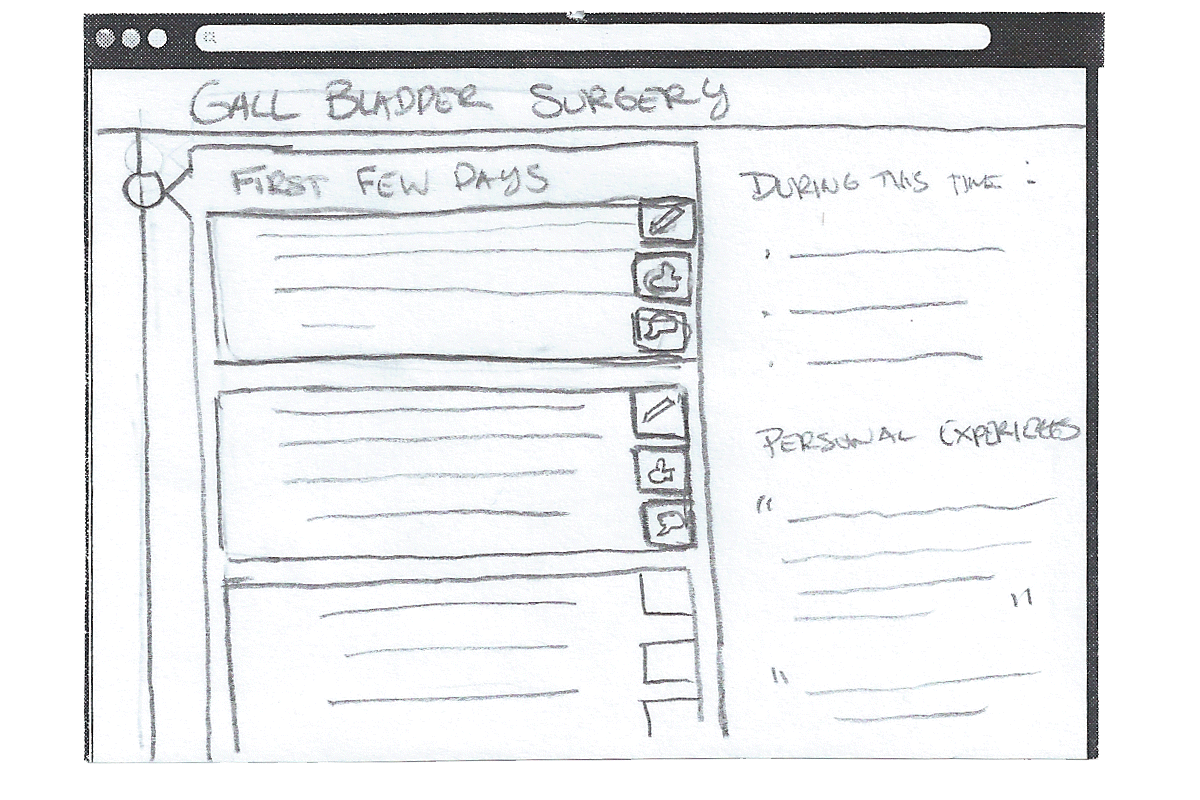 GALL BLADDER SURGERY
FIRST FEW DAYS
DURING THIS TIME :
PERSONAL EXPERIENCES